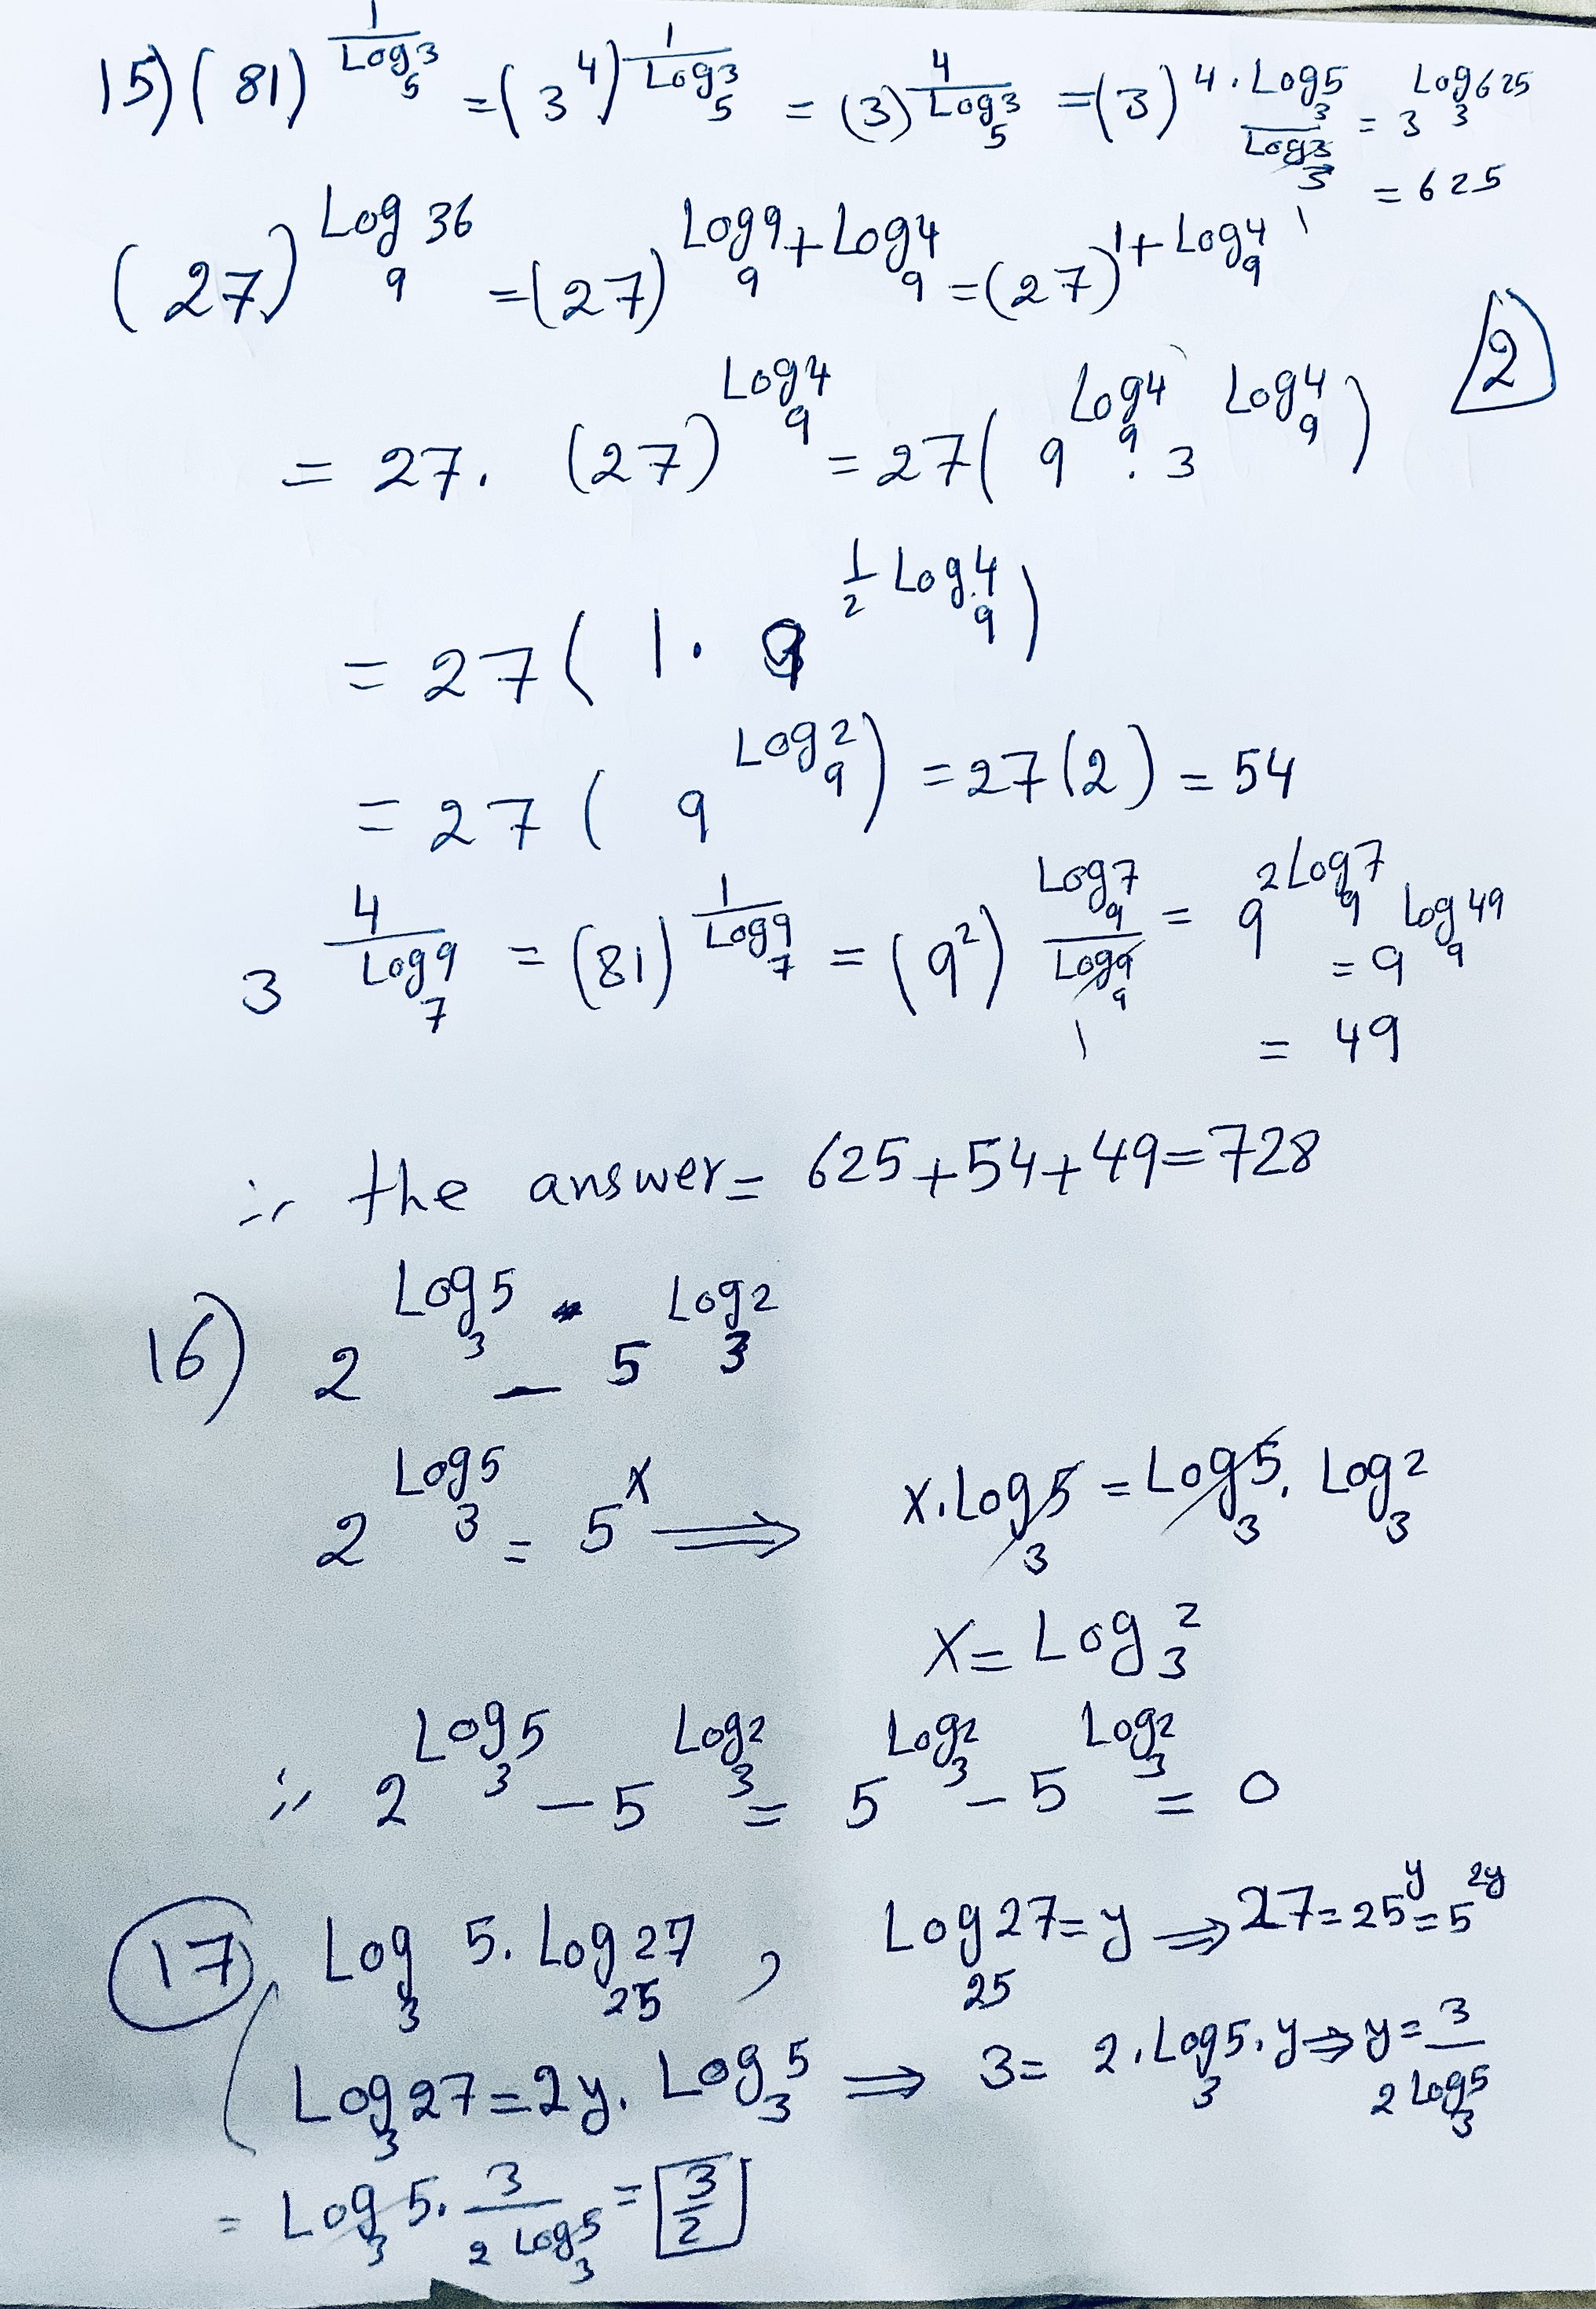 15) (81)^(1/Log_5 3) = (3^4)^(1/Log_5 3) = (3)^(4/Log_5 3) = (3)^(4 · Log_3 5/Log_3 3) = 3^(Log_3 625)
= 625
(27)^(Log_9 36) = (27)^(Log_9 9 + Log_9 4) = (27)^(1 + Log_9 4)
2
= 27 . (27)^(Log_9 4) = 27( 9^(Log_9 4) . 3^(Log_9 4) )
= 27 ( 1 . 9^(1/2 Log_9 4) )
= 27 ( 9^(Log_9 2) ) = 27(2) = 54
3^(4/Log_7 9) = (81)^(1/Log_7 9) = (9^2)^(Log_9 7/Log_9 9) = 9^(2Log_9 7)
= 9^(log_9 49)
1
= 49
∴ the answer = 625+54+49=728
16) 2^(Log_3 5) - 5^(Log_3 2)
2^(Log_3 5) = 5^x ⟹ x.Log_3 5 = Log_3 5 . Log_3 2
x = Log_3 2
∴ 2^(Log_3 5) - 5^(Log_3 2) = 5^(Log_3 2) - 5^(Log_3 2) = 0
17 Log_3 5 . Log_25 27 , Log_25 27 = y ⟹ 27 = 25^y = 5^2y
Log_3 27 = 2y . Log_3 5 ⟹ 3 = 2 . Log_3 5 . y ⟹ y = 3/(2 Log_3 5)
= Log_3 5 . 3/(2 Log_3 5) = 3/2